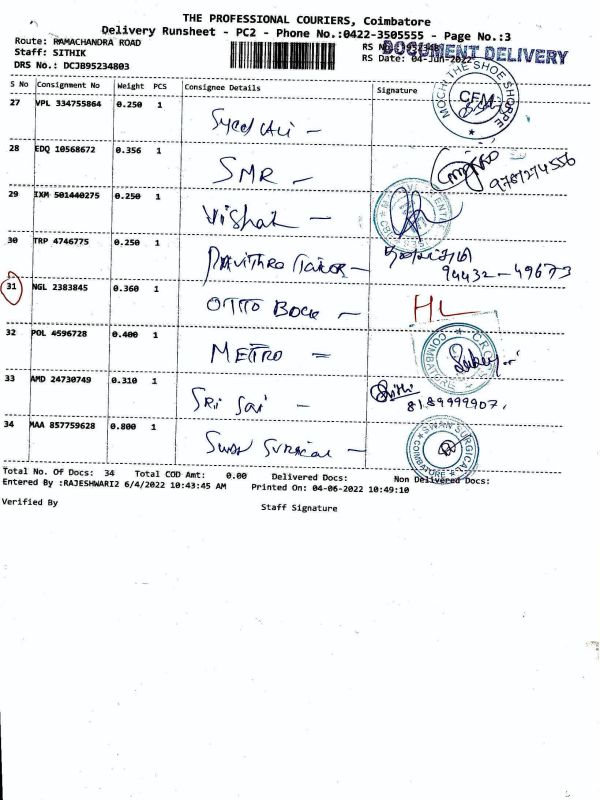 THE PROFESSIONAL COURIERS, Coimbatore
Delivery Runsheet - PC2 - Phone No.:0422-3505555 - Page No.:3
Route: RAMACHANDRA ROAD
Staff: SITHIK
RS Date: 04-Jun-2022
DOCUMENT DELIVERY
DRS No.: DCJ895234803
S No Consignment No Weight PCS Consignee Details Signature
MOCHI THE SHOE SHOPPE
CFM
27 VPL 334755864 0.250 1 Syed Ali –
28 EDQ 10568672 0.356 1 SMR – 9787274556
29 IXM 501440275 0.250 1 Vishal –
30 TRP 4746775 0.250 1 Pavithro Tailor – 94432-49673
31 NGL 2383845 0.360 1 OTTO Bock – HL
32 POL 4596728 0.400 1 METRO –
COIMBATORE
33 AMD 24730749 0.310 1 Sri Sai – 8189999907.
34 MAA 857759628 0.800 1 Swan Surgical –
SWAN SURGICAL
COIMBATORE
Total No. Of Docs: 34 Total COD Amt: 0.00 Delivered Docs: Non Delivered Docs:
Entered By :RAJESHWARI2 6/4/2022 10:43:45 AM Printed On: 04-06-2022 10:49:10
Verified By Staff Signature